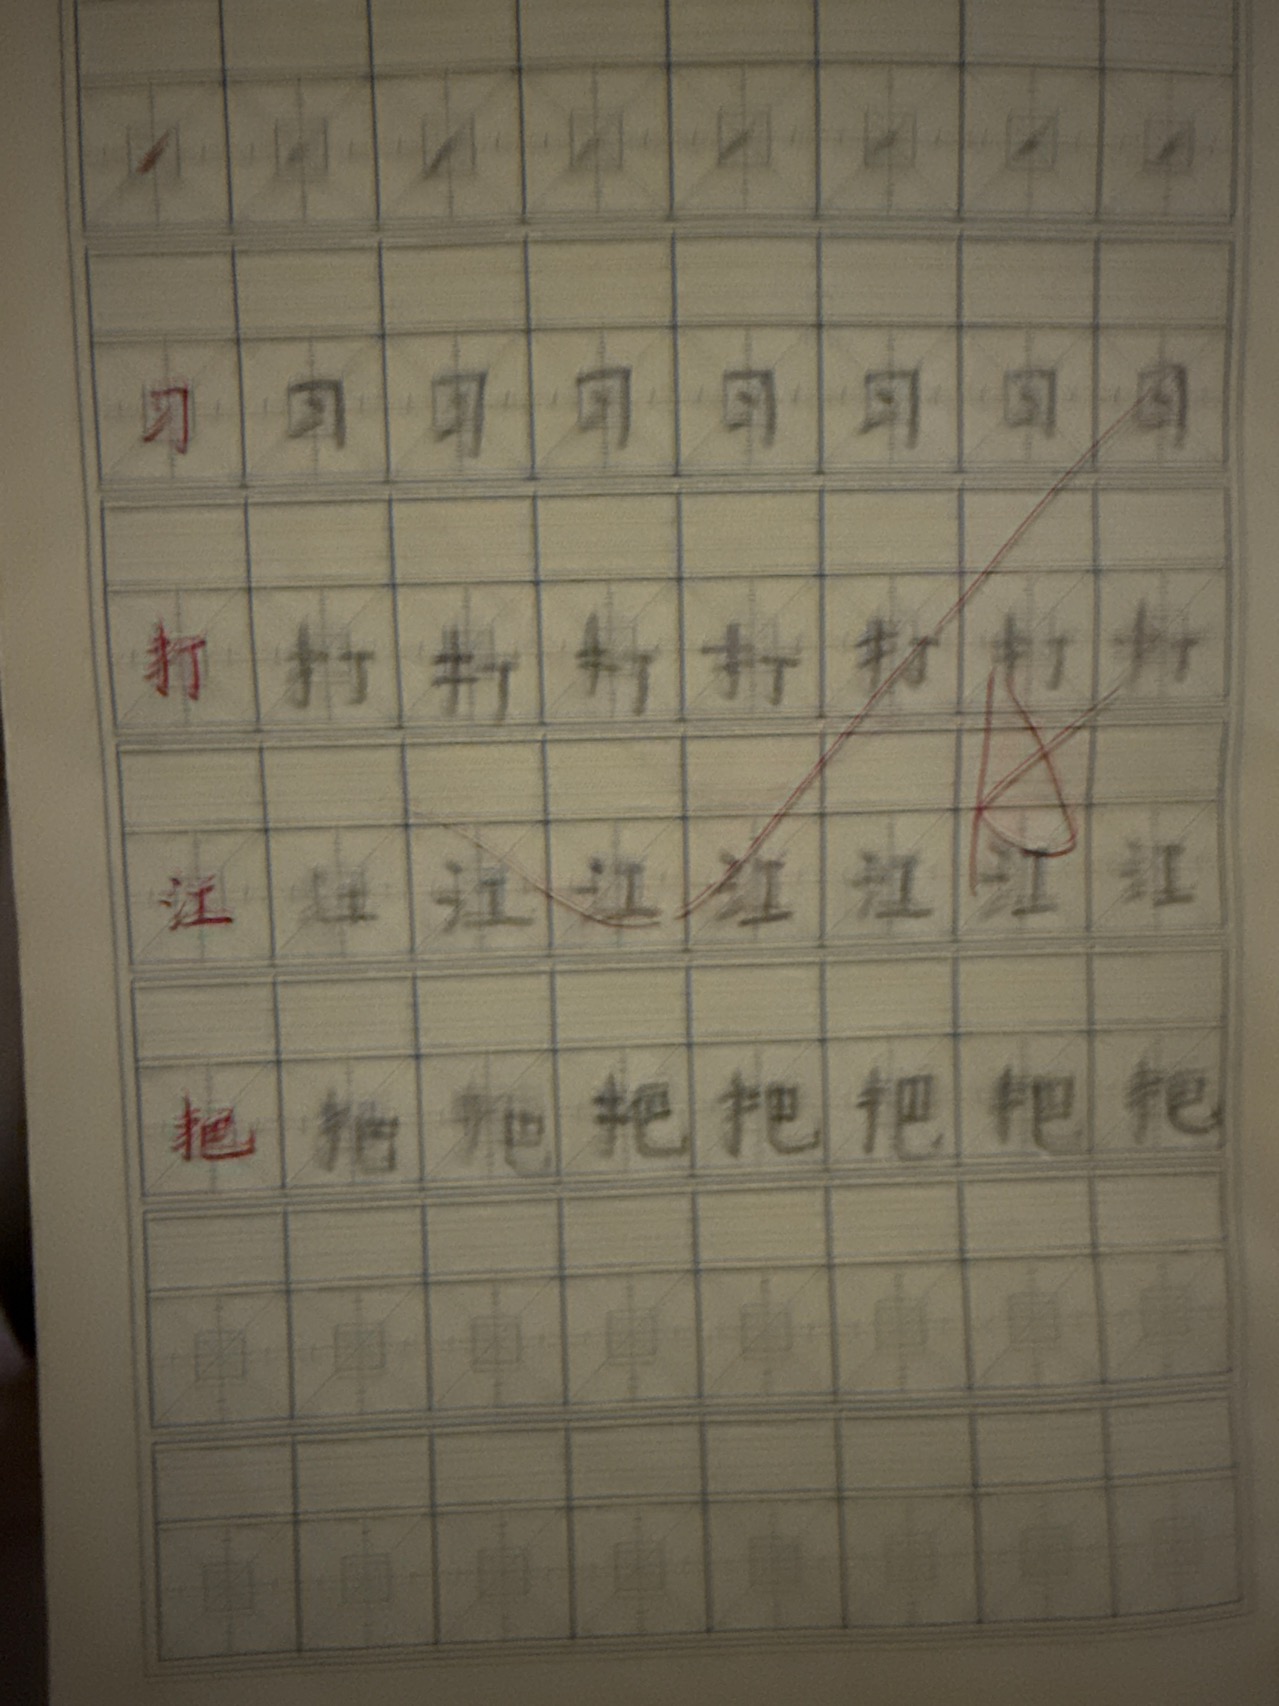 习习习习习习习习
打打打打打打打打
江江江江江江江江
把把把把把把把把
A